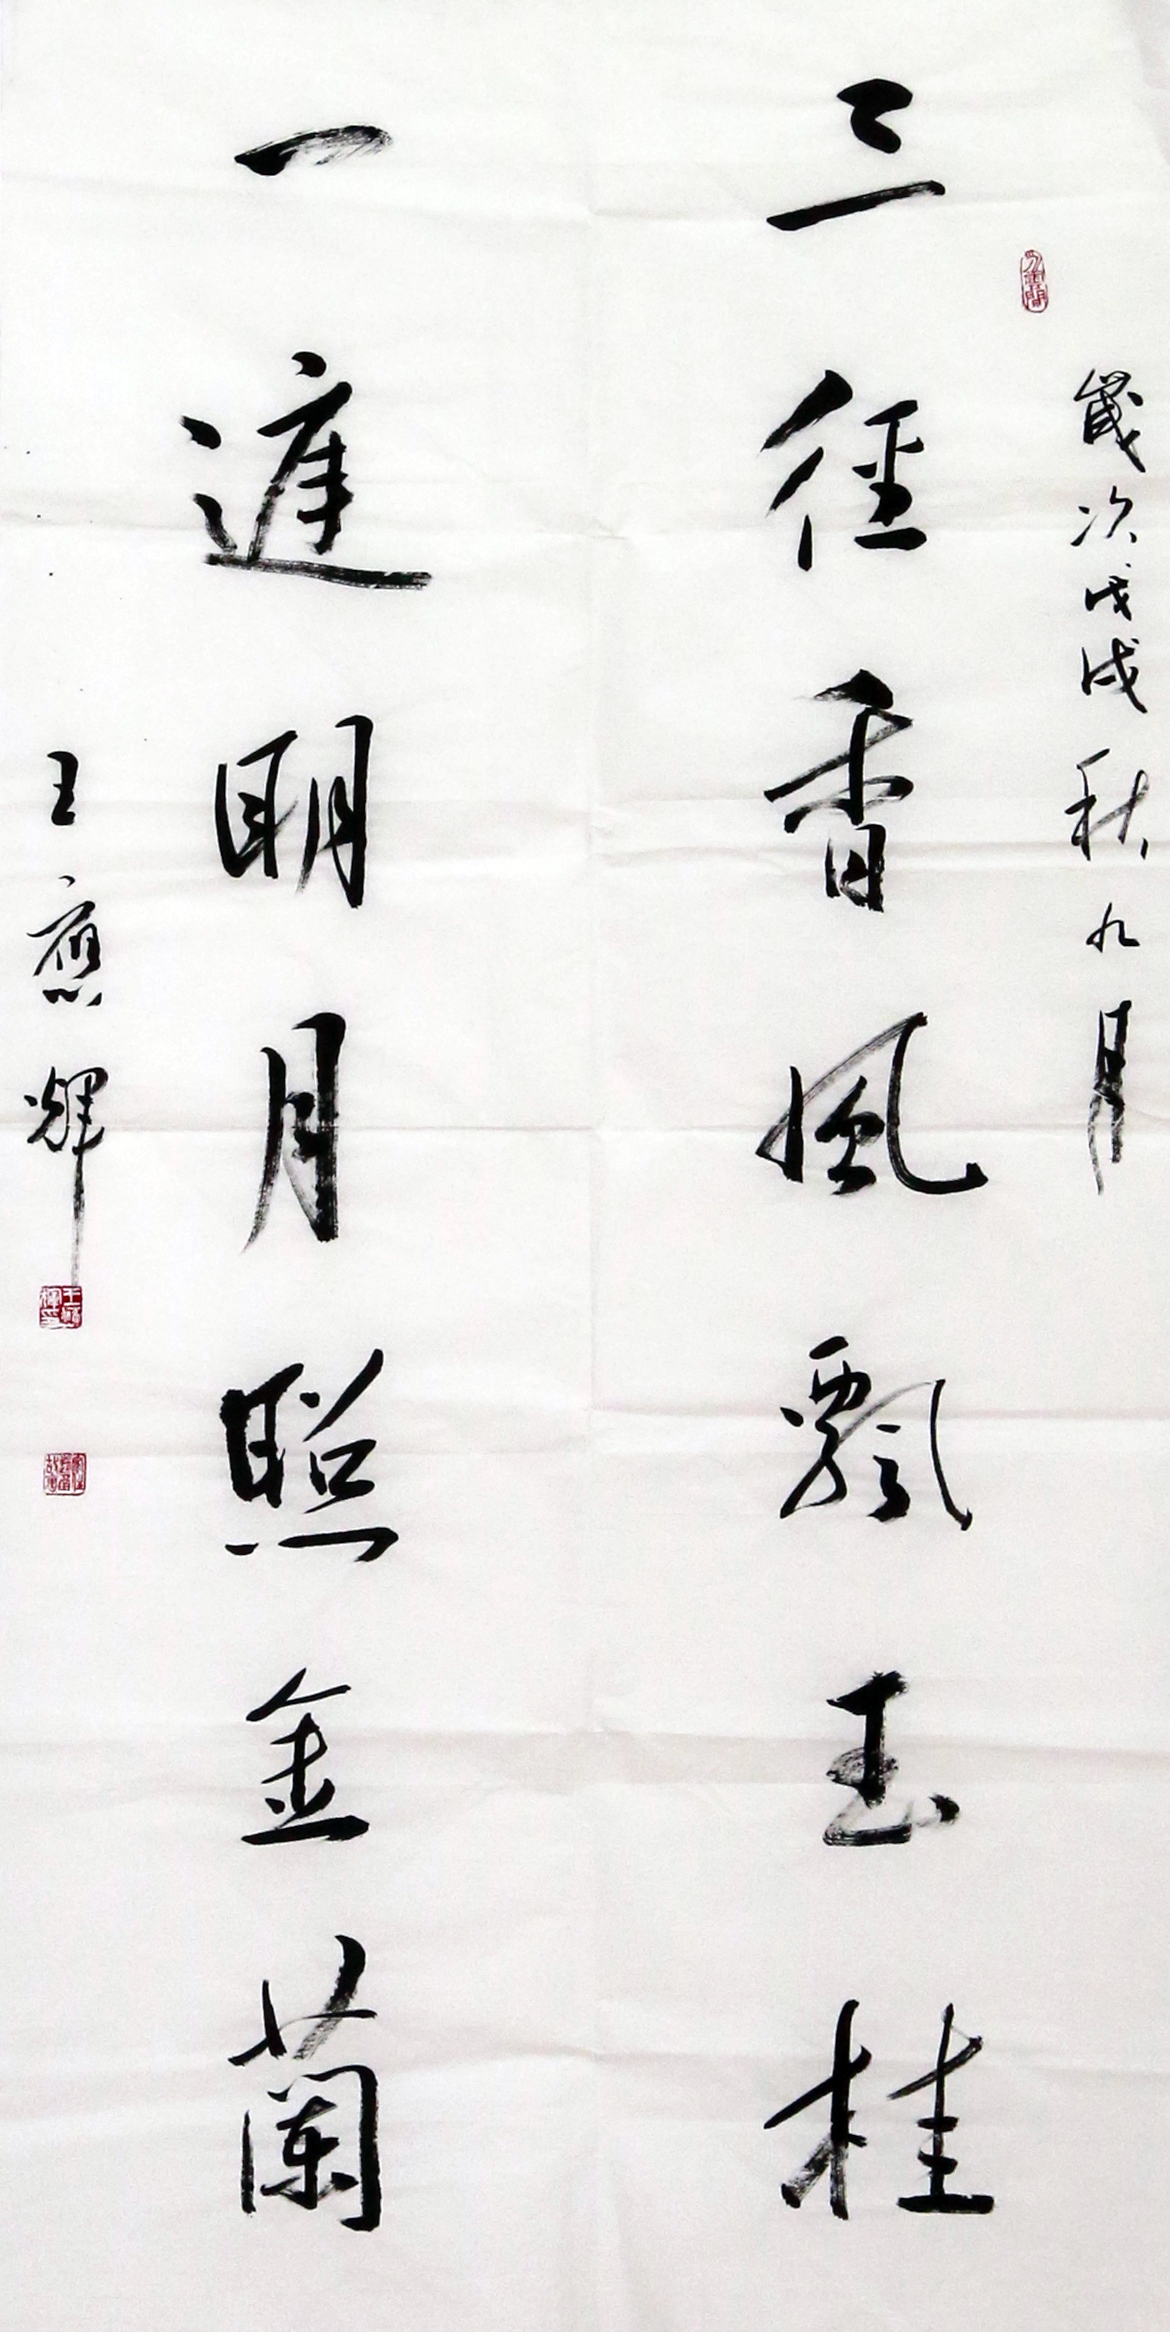 歲次戊戌秋九月
三徑香風飄玉桂
一庭明月照金蘭
王應輝